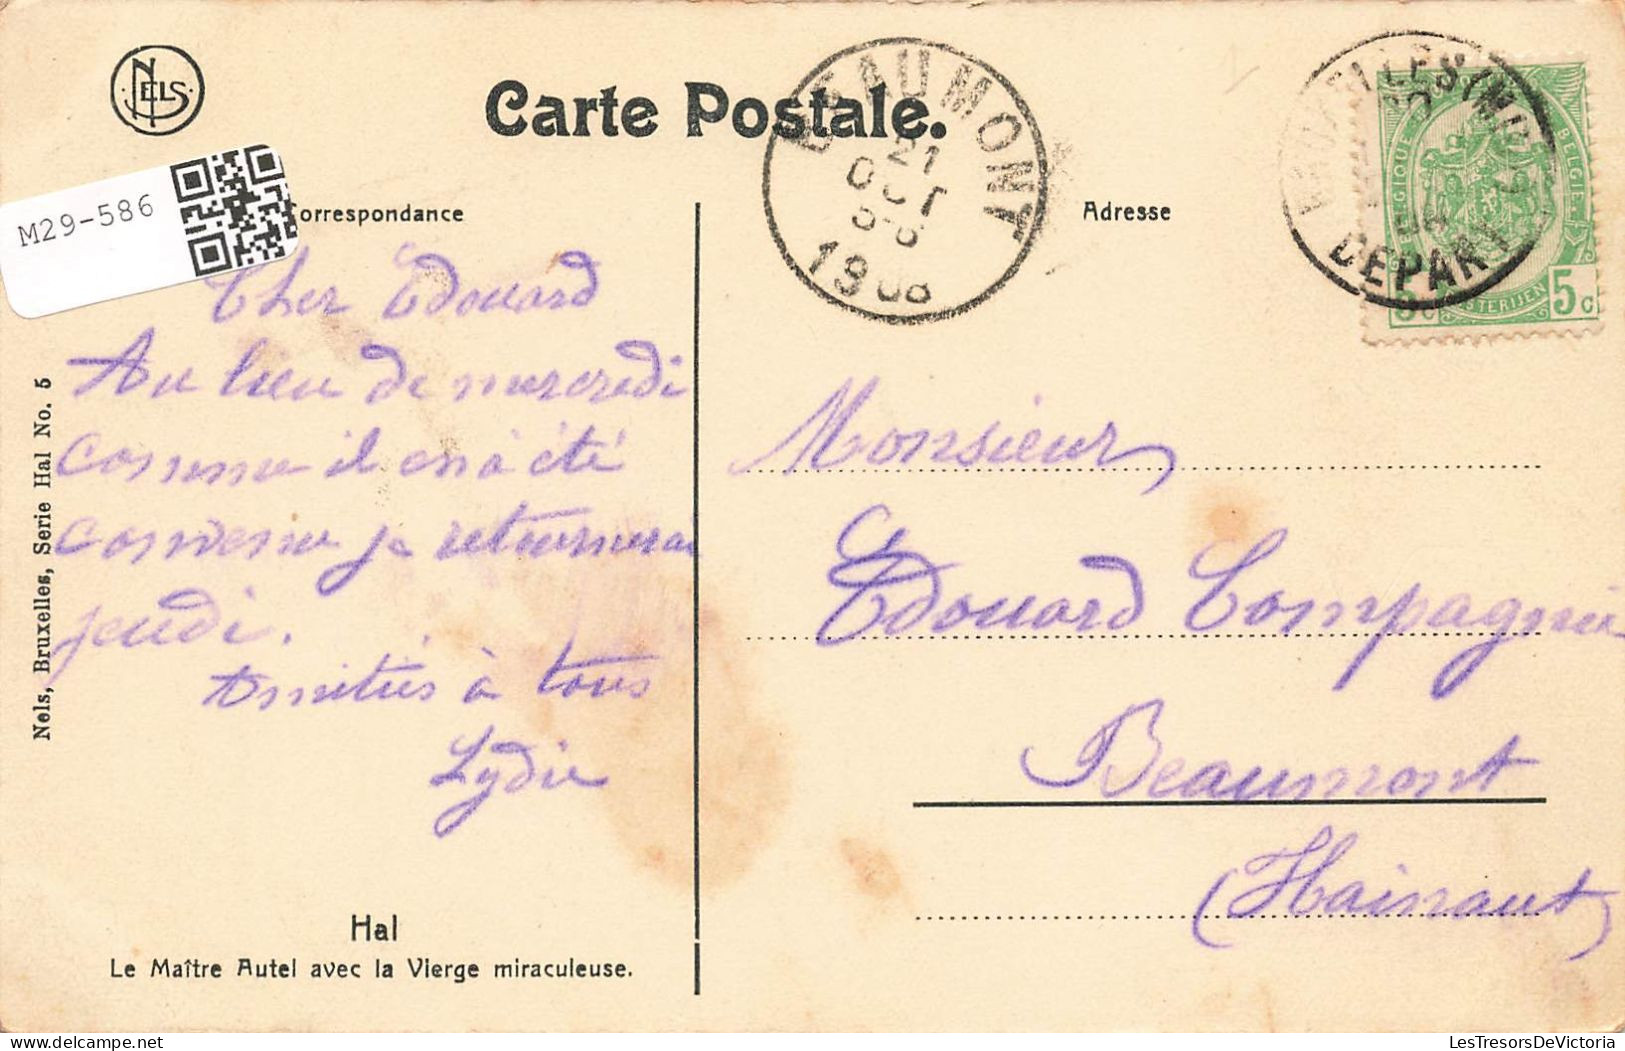 NELS
Carte Postale.
BEAUMONT
21
OCT
1908
BRUXELLES (MIDI)
DEPART
BELGIQUE
BELGIË
5c
5c
M29-586
Correspondance
Adresse
Cher Edouard
Au lieu de mercredi
comme il en a été
convenu je retournerai
jeudi.
Amitiés à tous
Lydie
Monsieur
Edouard Compagnie
Beaumont
(Hainaut)
Nels, Bruxelles, Serie Hal No. 5
Hal
Le Maître Autel avec la Vierge miraculeuse.
LesTresorsDeVictoria